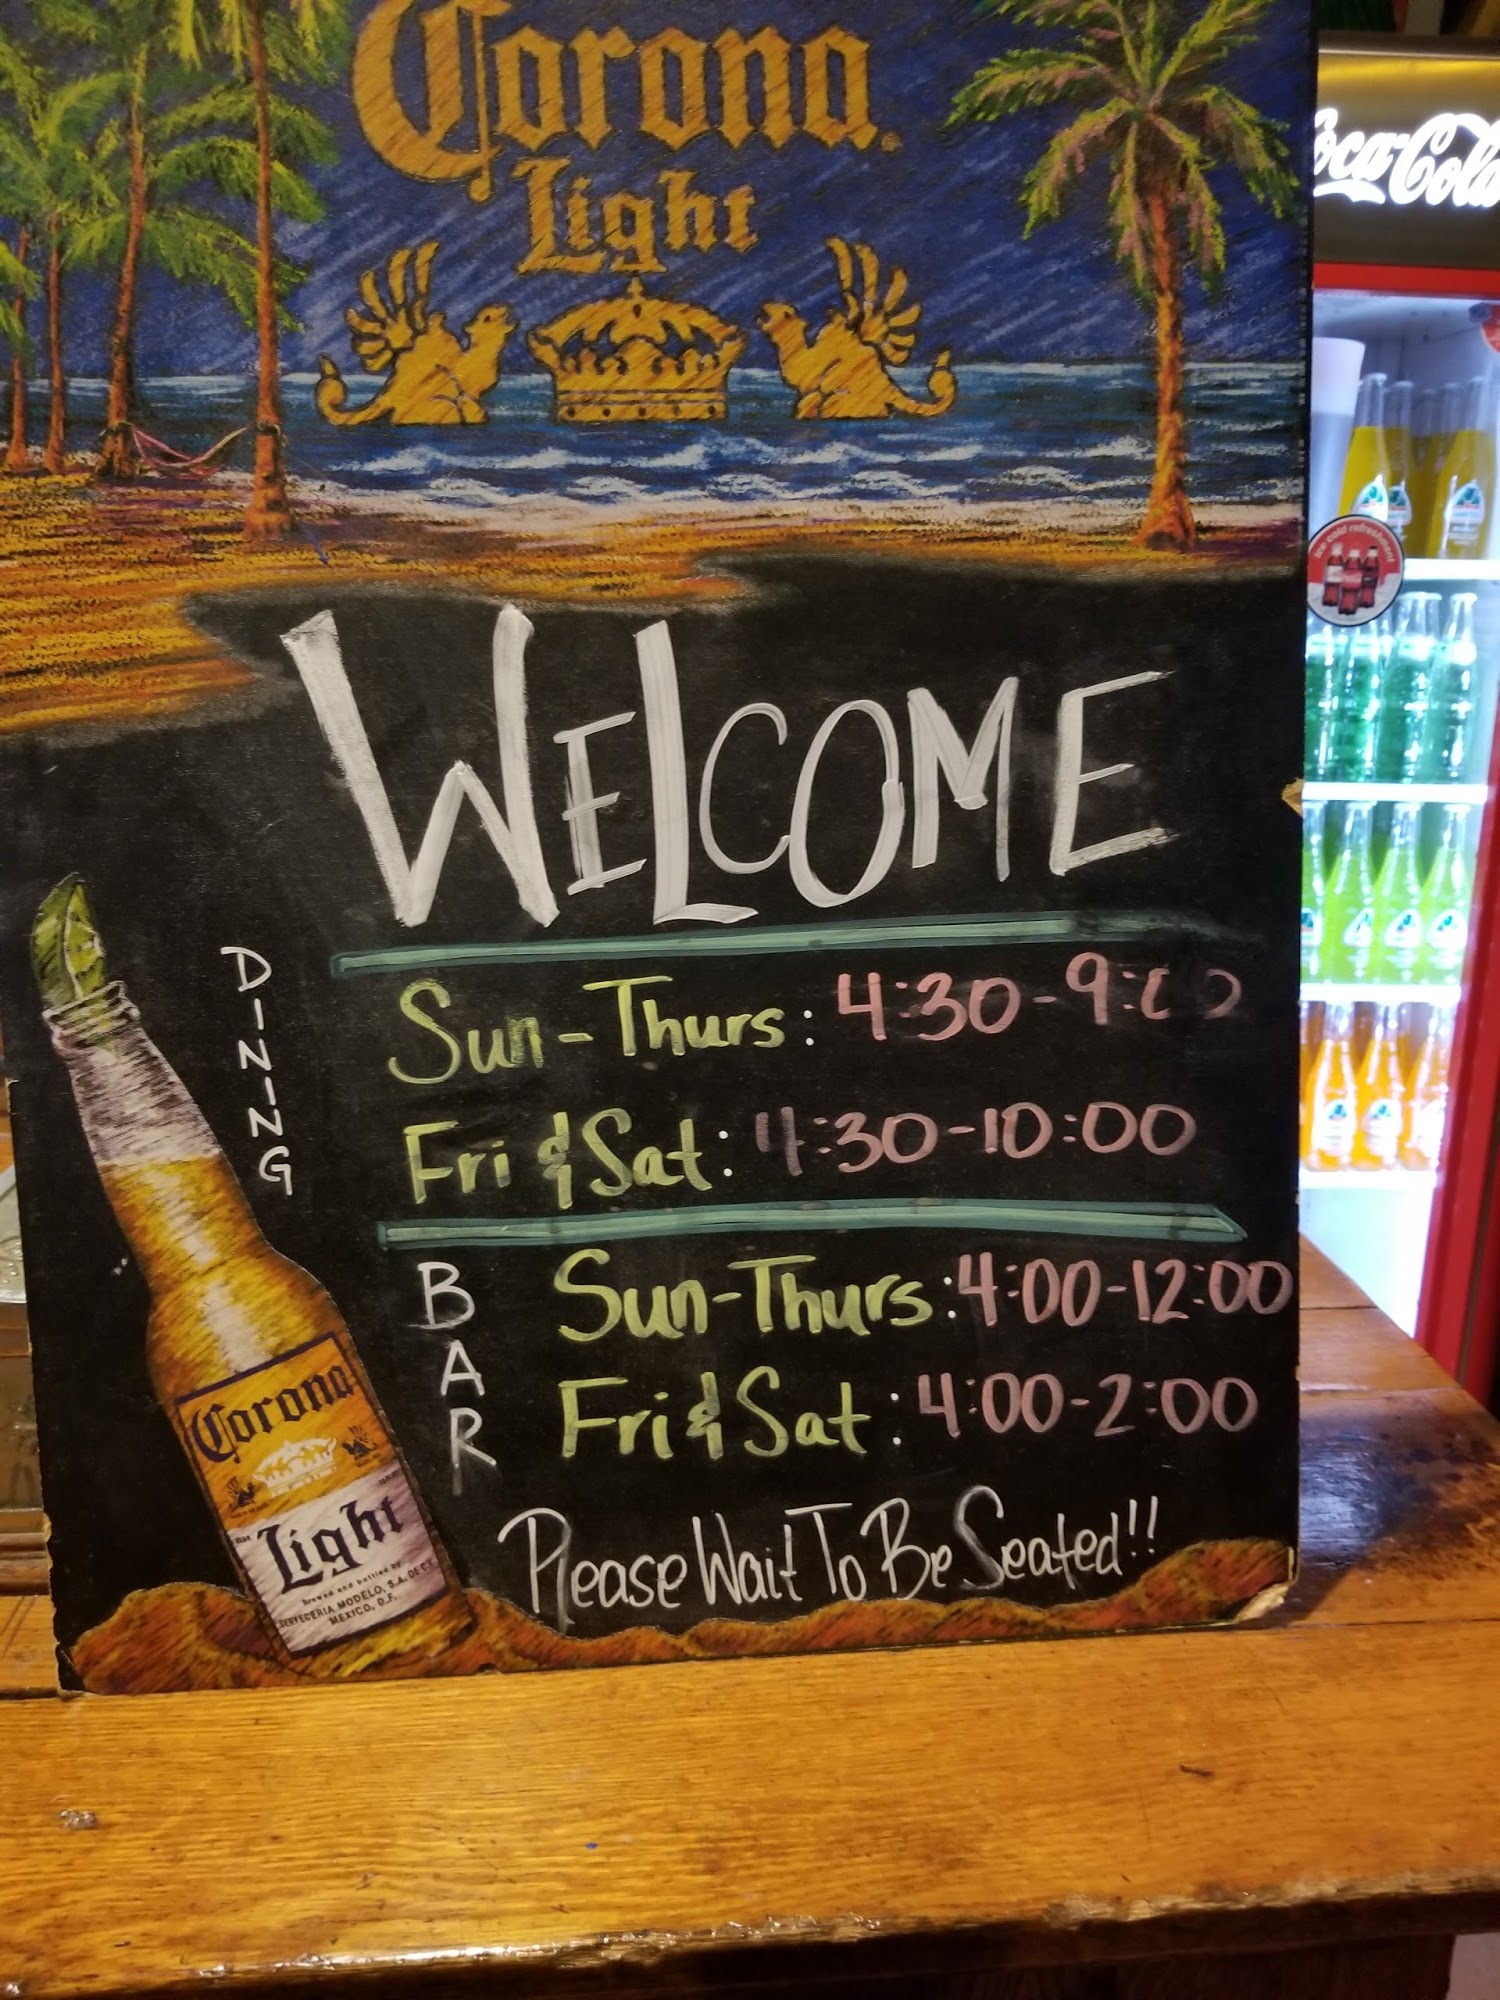 Corona
Light
Coca-Cola
ice cold refreshment
WELCOME
DINING
Sun-Thurs: 4:30-9:00
Fri & Sat: 4:30-10:00
BAR
Sun-Thurs: 4:00-12:00
Fri & Sat: 4:00-2:00
Please Wait To Be Seated!!
Corona
Light
brewed and bottled by
CERVECERIA MODELO, S.A. DE C.V.
MEXICO, D.F.